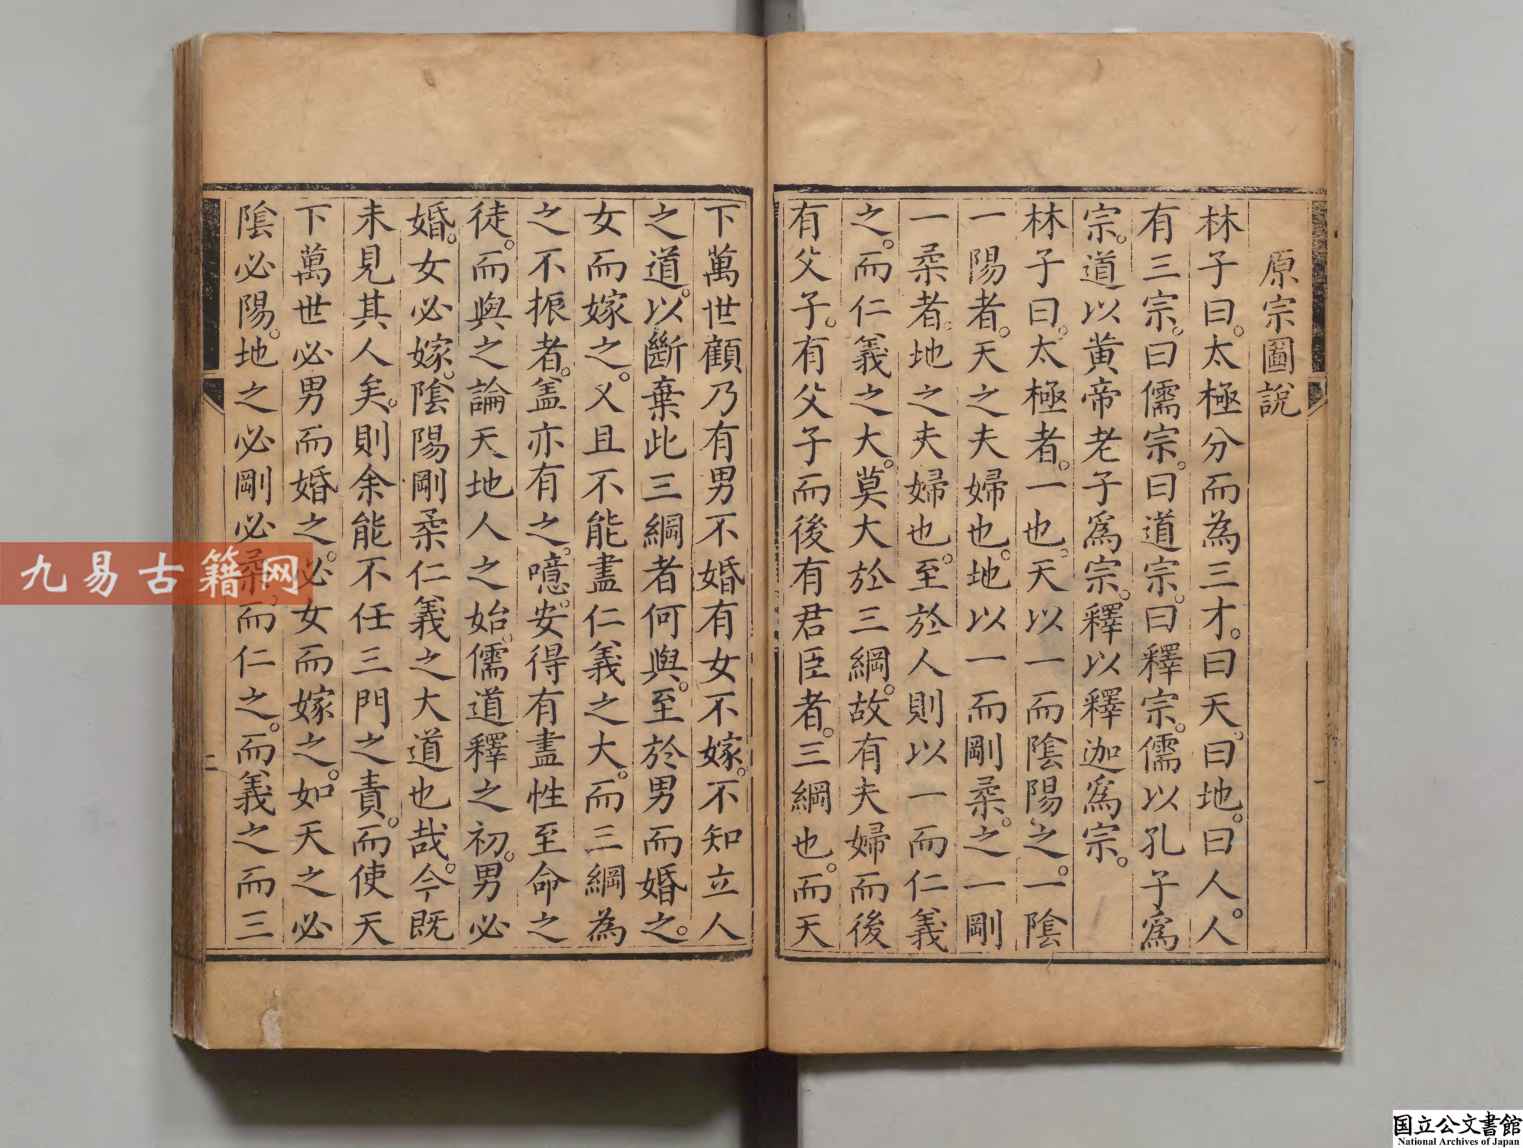 原宗圖說
林子曰。太極分而為三才。曰天。曰地。曰人。人
有三宗。曰儒宗。曰道宗。曰釋宗。儒以孔子爲
宗。道以黄帝老子爲宗。釋以釋迦爲宗。
林子曰。太極者。一也。天以一而陰陽之。一陰
一陽者。天之夫婦也。地以一而剛柔之。一剛
一柔者。地之夫婦也。至於人則以一而仁義
之。而仁義之大。莫大於三綱。故有夫婦而後
有父子。有父子而後有君臣者。三綱也。而天
下萬世顧乃有男不婚有女不嫁。不知立人
之道。以斷棄此三綱者何與。至於男而婚之。
女而嫁之。又且不能盡仁義之大。而三綱為
之不振者。盖亦有之。噫。安得有盡性至命之
徒。而與之論天地人之始。儒道釋之初。男必
婚。女必嫁。陰陽剛柔仁義之大道也哉。今既
未見其人矣。則余能不任三門之責。而使天
下萬世必男而婚之。必女而嫁之。如天之必
陰必陽。地之必剛必柔。而仁之。而義之而三
一
二
九易古籍网
国立公文書館
National Archives of Japan